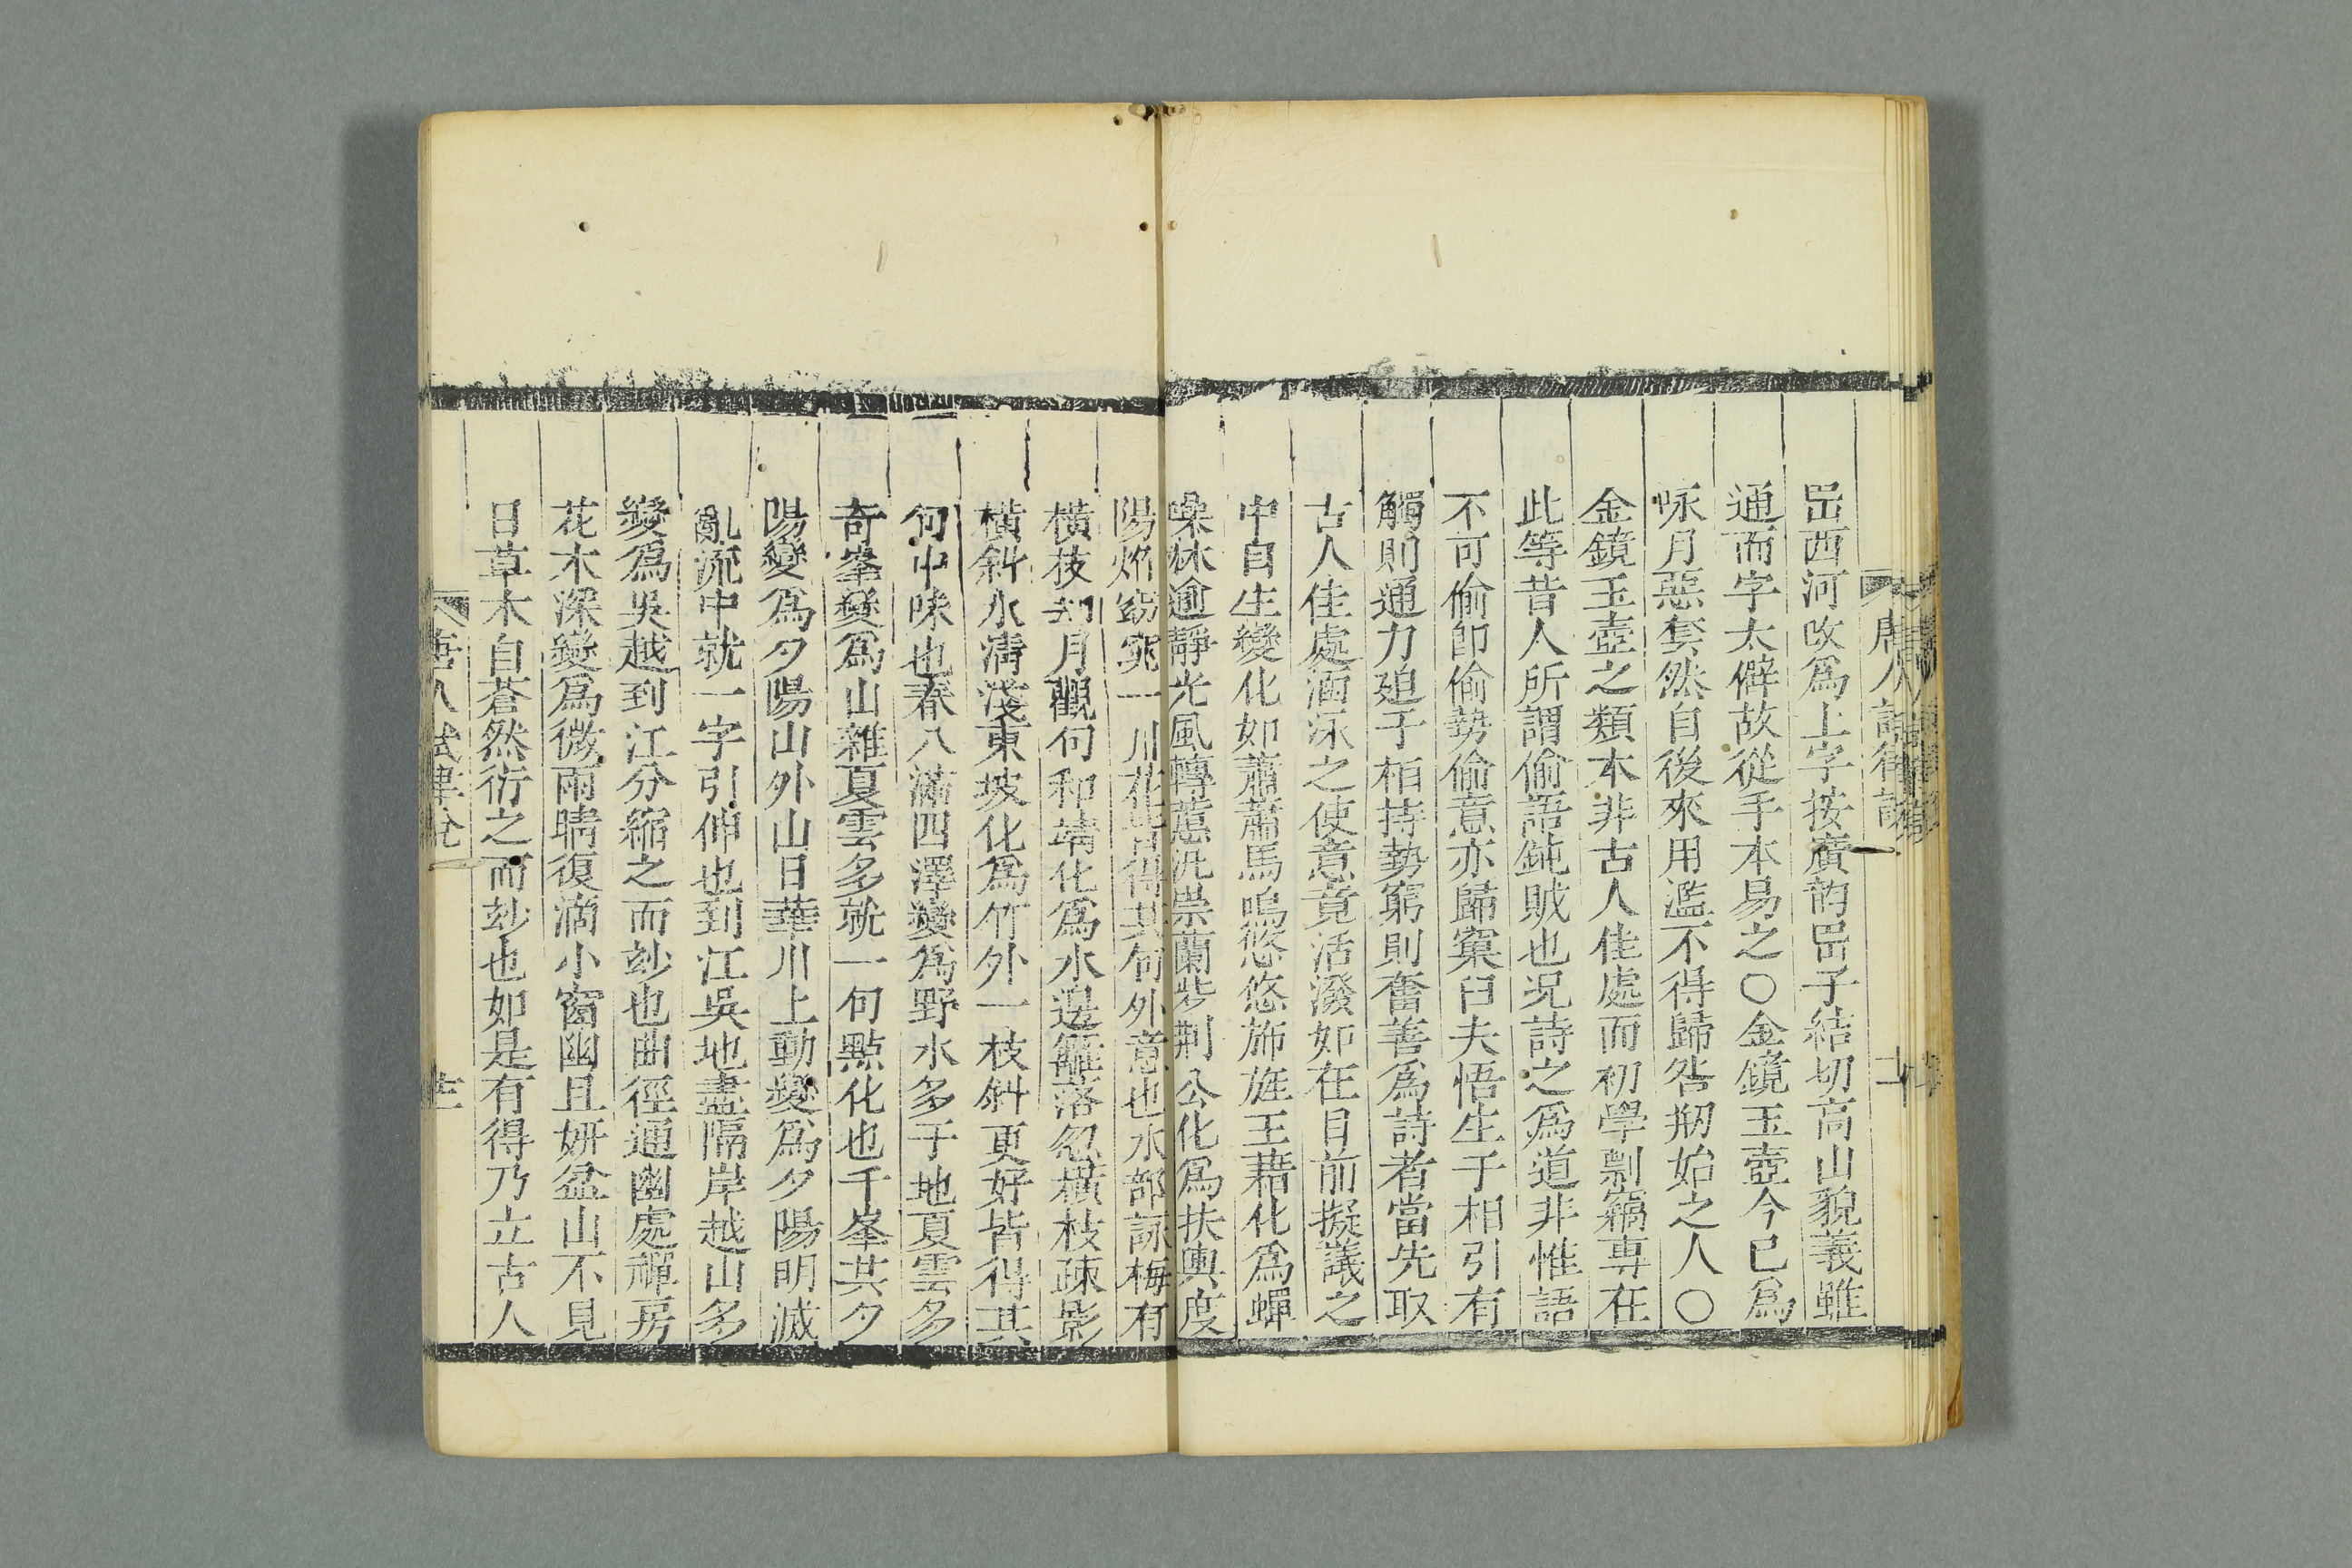 岊西河改爲上字按廣韵岊子結切高山貌義雖
通而字太僻故從手本易之○金鏡玉壺今已爲
咏月惡套然自後來用濫不得歸咎剏始之人○
金鏡玉壺之類本非古人佳處而初學剽竊專在
此等昔人所謂偷語鈍賊也况詩之爲道非惟語
不可偷卽偷勢偷意亦歸窠臼夫悟生于相引有
觸則通力廹于相持勢窮則奮善爲詩者當先取
古人佳處涵泳之使意竟活潑如在目前擬議之
中自生變化如蕭蕭馬鳴悠悠旆旌王藉化爲蟬
噪林逾靜光風轉蕙汎崇蘭荆公化爲扶輿度
陽焰窈窕一川花皆得其句外意也水部詠梅有
橫枝却月觀句和靖化爲水邊籬落忽橫枝疎影
橫斜水淸淺東坡化爲竹外一枝斜更好皆得其
句中味也春水滿四澤變爲野水多于地夏雲多
奇峯變爲山雜夏雲多就一句點化也千峯共夕
陽變爲夕陽山外山日華川上動變爲夕陽明滅
亂流中就一字引伸也到江吳地盡隔岸越山多
變爲吳越到江分縮之而玅也曲徑通幽處禪房
花木深變爲微雨晴復滴小窗幽且妍盆山不見
日草木自蒼然衍之而玅也如是有得乃立古人